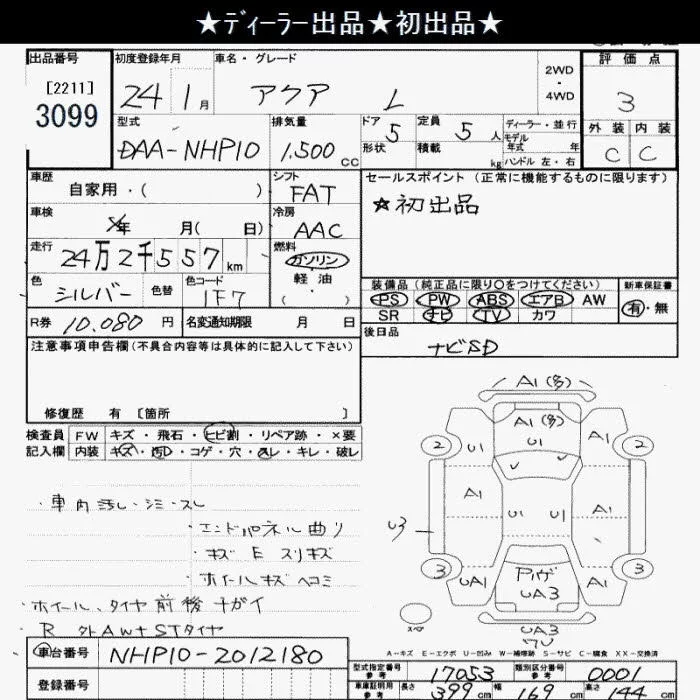 ★ディーラー出品★初出品★
出品番号 初度登録年月 車名・グレード 評価点
[2211] 3099
24 1月 アクア L
2WD
・
4WD
3
型式 排気量 ドア 5 定員 5人 ディーラー・並行
形状 積載 kg モデル年式 年
ハンドル 左・右
外装 内装
DAA-NHP10 1,500cc
C C
車歴 自家用・( )
シフト FAT
セールスポイント(正常に機能するものに限ります)
★初出品
車検 年 月( 日)
冷房 AAC
走行 24万2千557km
燃料 ガソリン
軽油
( ・ )
色 シルバー 色替 色コード 1F7
装備品(純正品に限り○をつけてください) 新車保証書
PS PW ABS エアB AW
SR ナビ TV カワ
有・無
R券 10,080円 名変通知期限 月 日
後日品
ナビSD
注意事項申告欄(不具合内容等は具体的に記入して下さい)
修復歴 有 [箇所 ]
検査員 FW キズ・飛石・ヒビ割・リペア跡・×要
記入欄 内装 キズ・汚レ・コゲ・穴・スレ・キレ・破レ
・車内汚し・シミ・スレ
・エンドパネル曲り
・キズ E スリキズ
・ホイールキズヘコミ
・ホイール、タイヤ前後チガイ
・R 外AW+STタイヤ
A1(多)
A1(多)
2 U1 U1 A1 2
A1 U1 U1 A1
U3
3 UA1 UA3 A1 3
スペ
UA3
A-キズ E-エクボ U-凹み W-補修跡 S-サビ C-腐食 XX-交換済
車台番号 NHP10-2012180
登録番号
型式指定番号 参考 17053 類別区分番号 参考 0001
車庫証明用 参考 長さ 399cm 幅 169cm 高さ 144cm